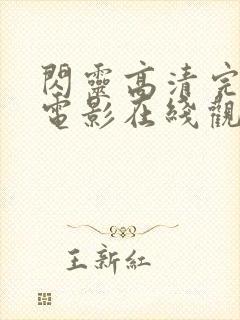 閃靈高清完
電影在綫觀
王新紅